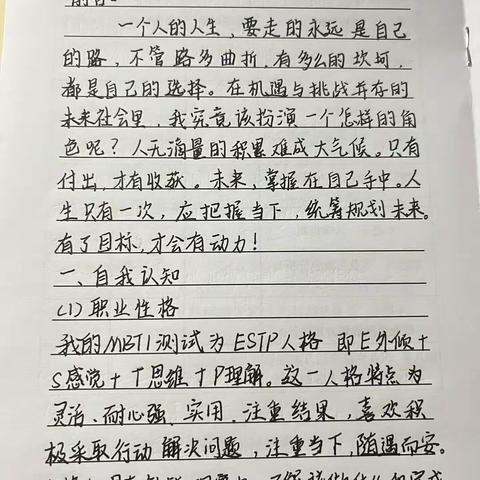 前言:
一个人的人生，要走的永远是自己
的路，不管路多曲折，有多么的坎坷，
都是自己的选择。在机遇与挑战并存的
未来社会里，我究竟该扮演一个怎样的角
色呢？人无涓量的积累难成大气候。只有
付出，才有收获。未来，掌握在自己手中。人
生只有一次，应把握当下，统筹规划未来。
有了目标，才会有动力！
一、自我认知
(1)职业性格
我的MBTI测试为ESTP人格 即E外倾＋
S感觉＋T思维＋P理解。这一人格特点为
灵活、耐心强、实用、注重结果，喜欢积
极采取行动解决问题，注重当下，随遇而安。